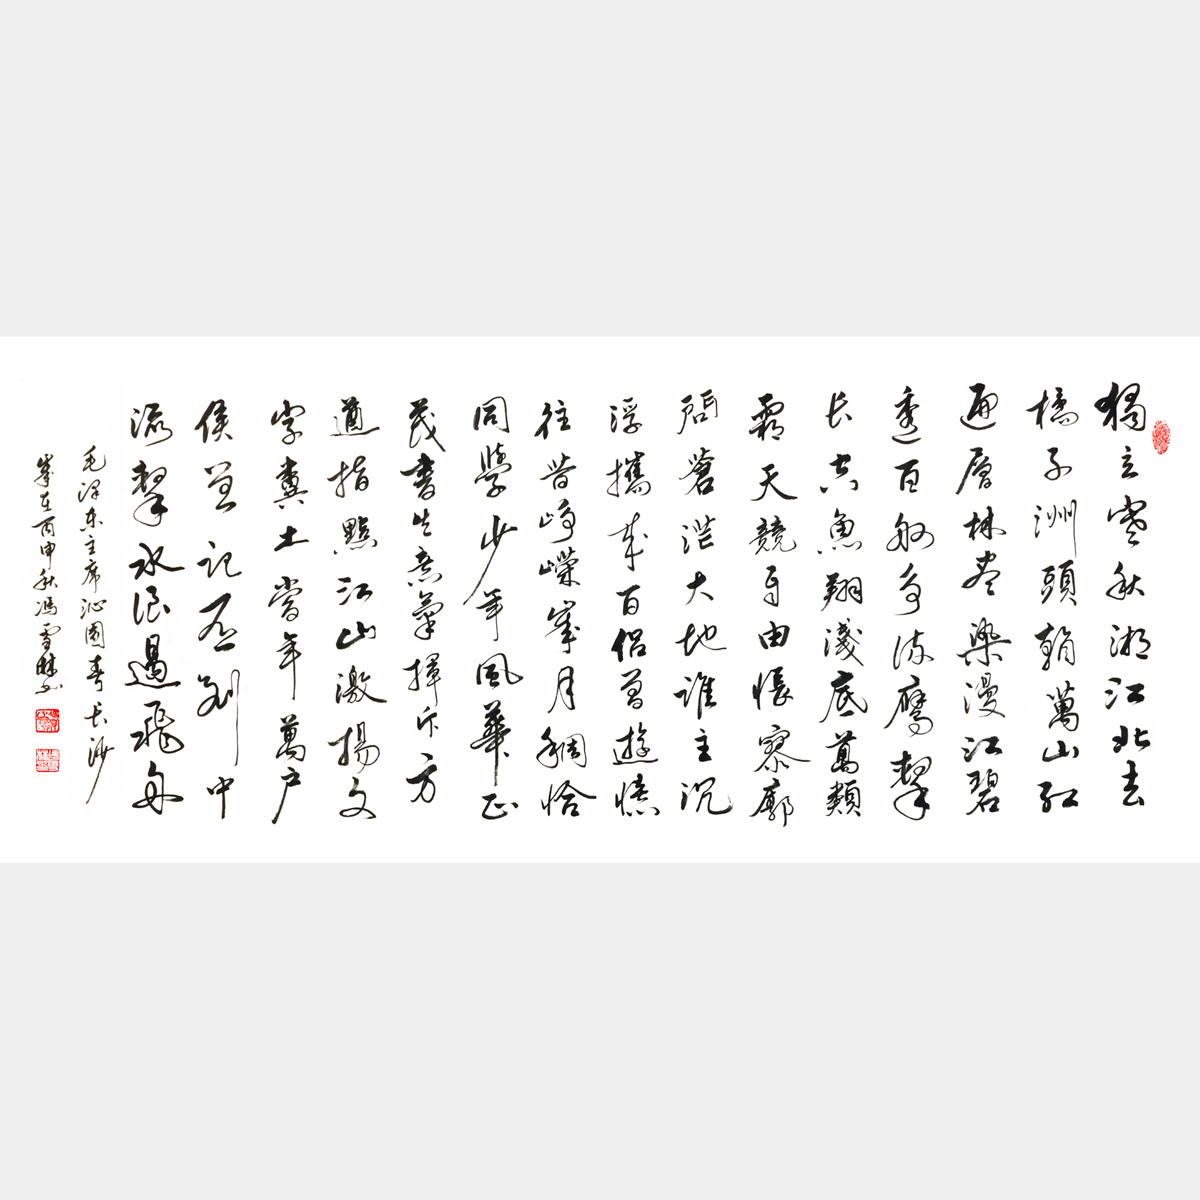 獨立寒秋湘江北去
橘子洲頭看萬山紅
遍層林盡染漫江碧
透百舸爭流鷹擊
长空魚翔淺底萬類
霜天競自由悵寥廓
問蒼茫大地誰主沉
浮攜來百侶曾遊憶
往昔崢嶸歲月稠恰
同學少年風華正
茂書生意氣揮斥方
遒指點江山激揚文
字糞土當年萬户
侯曾記否到中
流擊水浪遏飛舟
毛泽东主席沁園春长沙
歲在丙申秋馮雪林书